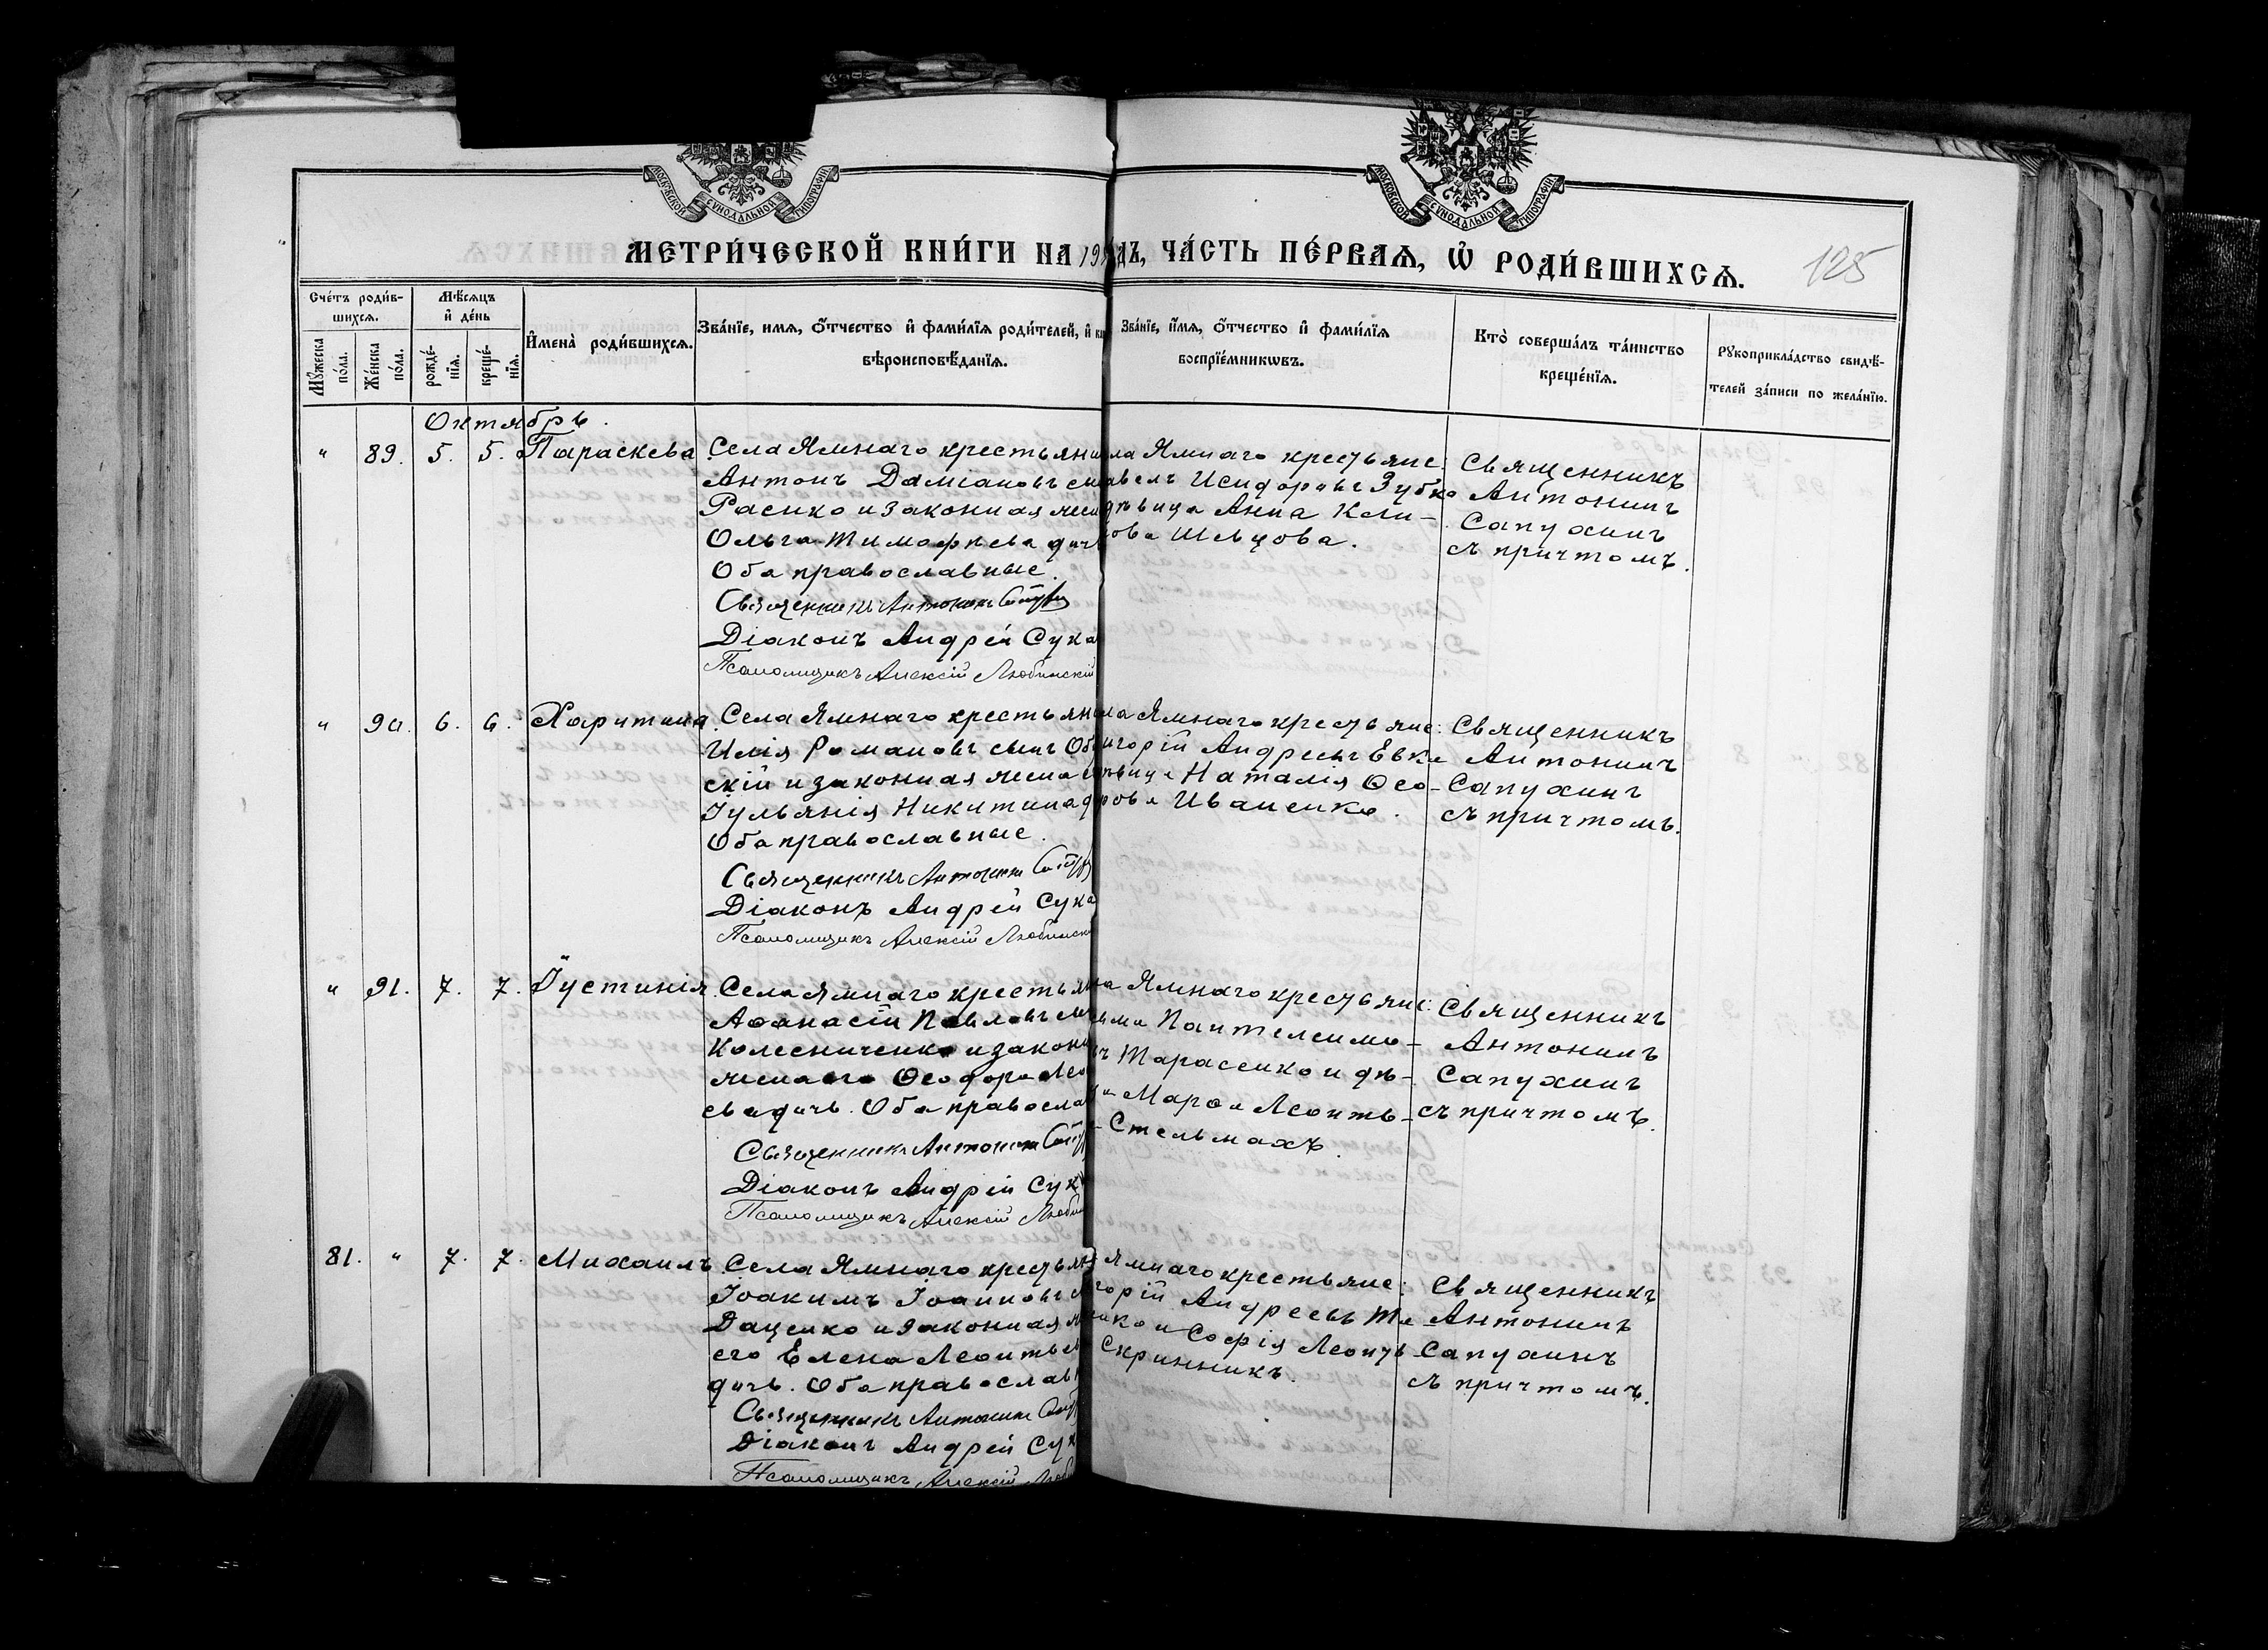 МОСКОВСКОЙ СѴНОДАЛЬНОЙ ТИПОГРАФІИ
МОСКОВСКОЙ СѴНОДАЛЬНОЙ ТИПОГРАФІИ
МЕТРИ́ЧЕСКОЙ КНИ́ГИ НА 19 ДЪ, ЧА́СТЬ ПЕ́РВАѦ, Ѽ РОДИ́ВШИХСѦ.
125
Сче́тъ роди́в-
шихсѧ.
Мѣ́сѧцъ
и҆ де́нь
Мꙋ́жеска
по́ла.
Же́нска
по́ла.
рожде́-
нїѧ.
креще́-
нїѧ.
И҆мена̀ роди́вшихсѧ.
Зва́нїе, имѧ, ѻ҆́тчество и҆ фами́лїѧ роди́телей, и҆
вѣроисповѣ́данїѧ.
Зва́нїе, и҆́мѧ, ѻ҆́тчество и҆ фами́лїѧ
воспрїе́мникѡвъ.
Кто̀ соверша́лъ та́инство
креще́нїѧ.
Рꙋкоприкла́дство свидѣ́-
телей за́писи по жела́нїю.
Октябрь.
„ 89. 5. 5. Параскева
Села Ямнаго крестьяни
Антонъ Даміановъ сы
Расико и законная жена
Ольга Тимофѣева дочь
Оба православные.
Священникъ Антонин
Діаконъ Андрей Сука
Псаломщикъ Алексій Любинскій
ла Ямнаго крестьяне:
авелъ Исидоровъ Зубко
дѣвица Анна Кли-
ова Шевцова.
Священникъ
Антонинъ
Сапухинъ
съ причтомъ.
„ 90. 6. 6. Харитина
Села Ямнаго крестьян
Илія Романовъ сынъ Об
скій и законная жена е
Іульянія Никитина д
Оба православные.
Священникъ Антонин
Діаконъ Андрей Сука
Псаломщикъ Алексій Любинск
ла Ямнаго крестьяне:
игорій Андреевъ Евка
ѣвица Наталія Ѳео-
рова Иваненко.
Священникъ
Антонинъ
Сапухинъ
съ причтомъ.
„ 91. 7. 7. Іустинія
Села Ямнаго крестьян
Аѳанасій Павловъ
Колесниченко и закон
жена его Ѳеодора Лео
ева дочь. Оба правосла
Священникъ Антонин
Діаконъ Андрей Сук
Псаломщикъ Алексій Люби
на Ямнаго крестьяне:
ьма Пантелеимо-
въ Тарасенко и дѣ-
ца Марѳа Леонть-
Стельмахъ.
Священникъ
Антонинъ
Сапухинъ
съ причтомъ.
81. „ 7. 7. Михаилъ
Села Ямнаго крестьян
Іоакимъ Іоанновъ
Даценко и законная
его Елена Леонтьев
дочь. Оба православ
Священникъ Антонин
Діаконъ Андрей Сук
Псаломщикъ Алексій Люби
Ямнаго крестьяне:
горій Андреевъ
нко и Софія Леонть
Скринникъ.
Священникъ
Антонинъ
Сапухинъ
съ причтомъ.